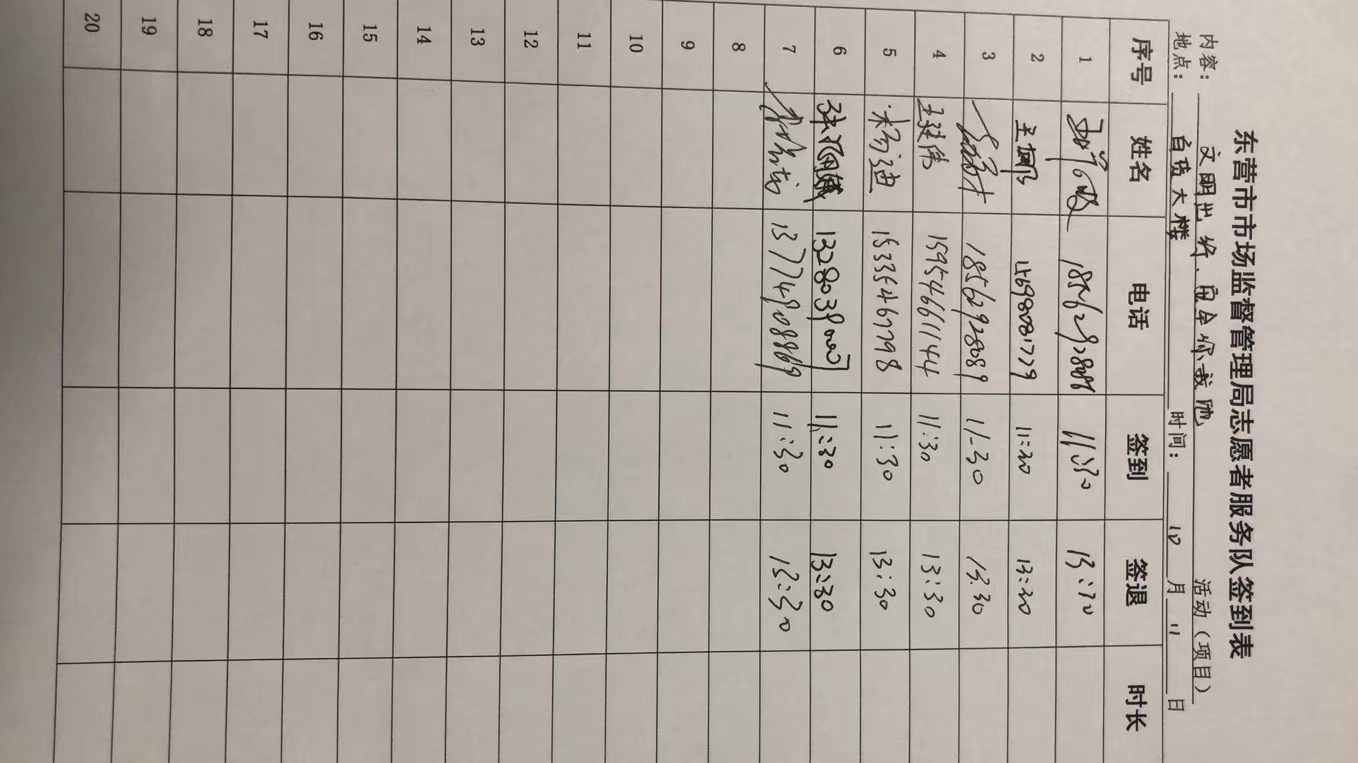 东营市市场监督管理局志愿者服务队签到表
内容： 文明出行、安全你我他 活动（项目）
地点： 百货大楼 时间： 10 月 11 日
序号 姓名 电话 签到 签退 时长
1 11:30 13:30
2 11:30 13:30
3 18562928089 11:30 13:30
4 王建伟 15954661144 11:30 13:30
5 杨迪 15335467798 11:30 13:30
6 11:30 13:30
7 11:30 13:30
8
9
10
11
12
13
14
15
16
17
18
19
20